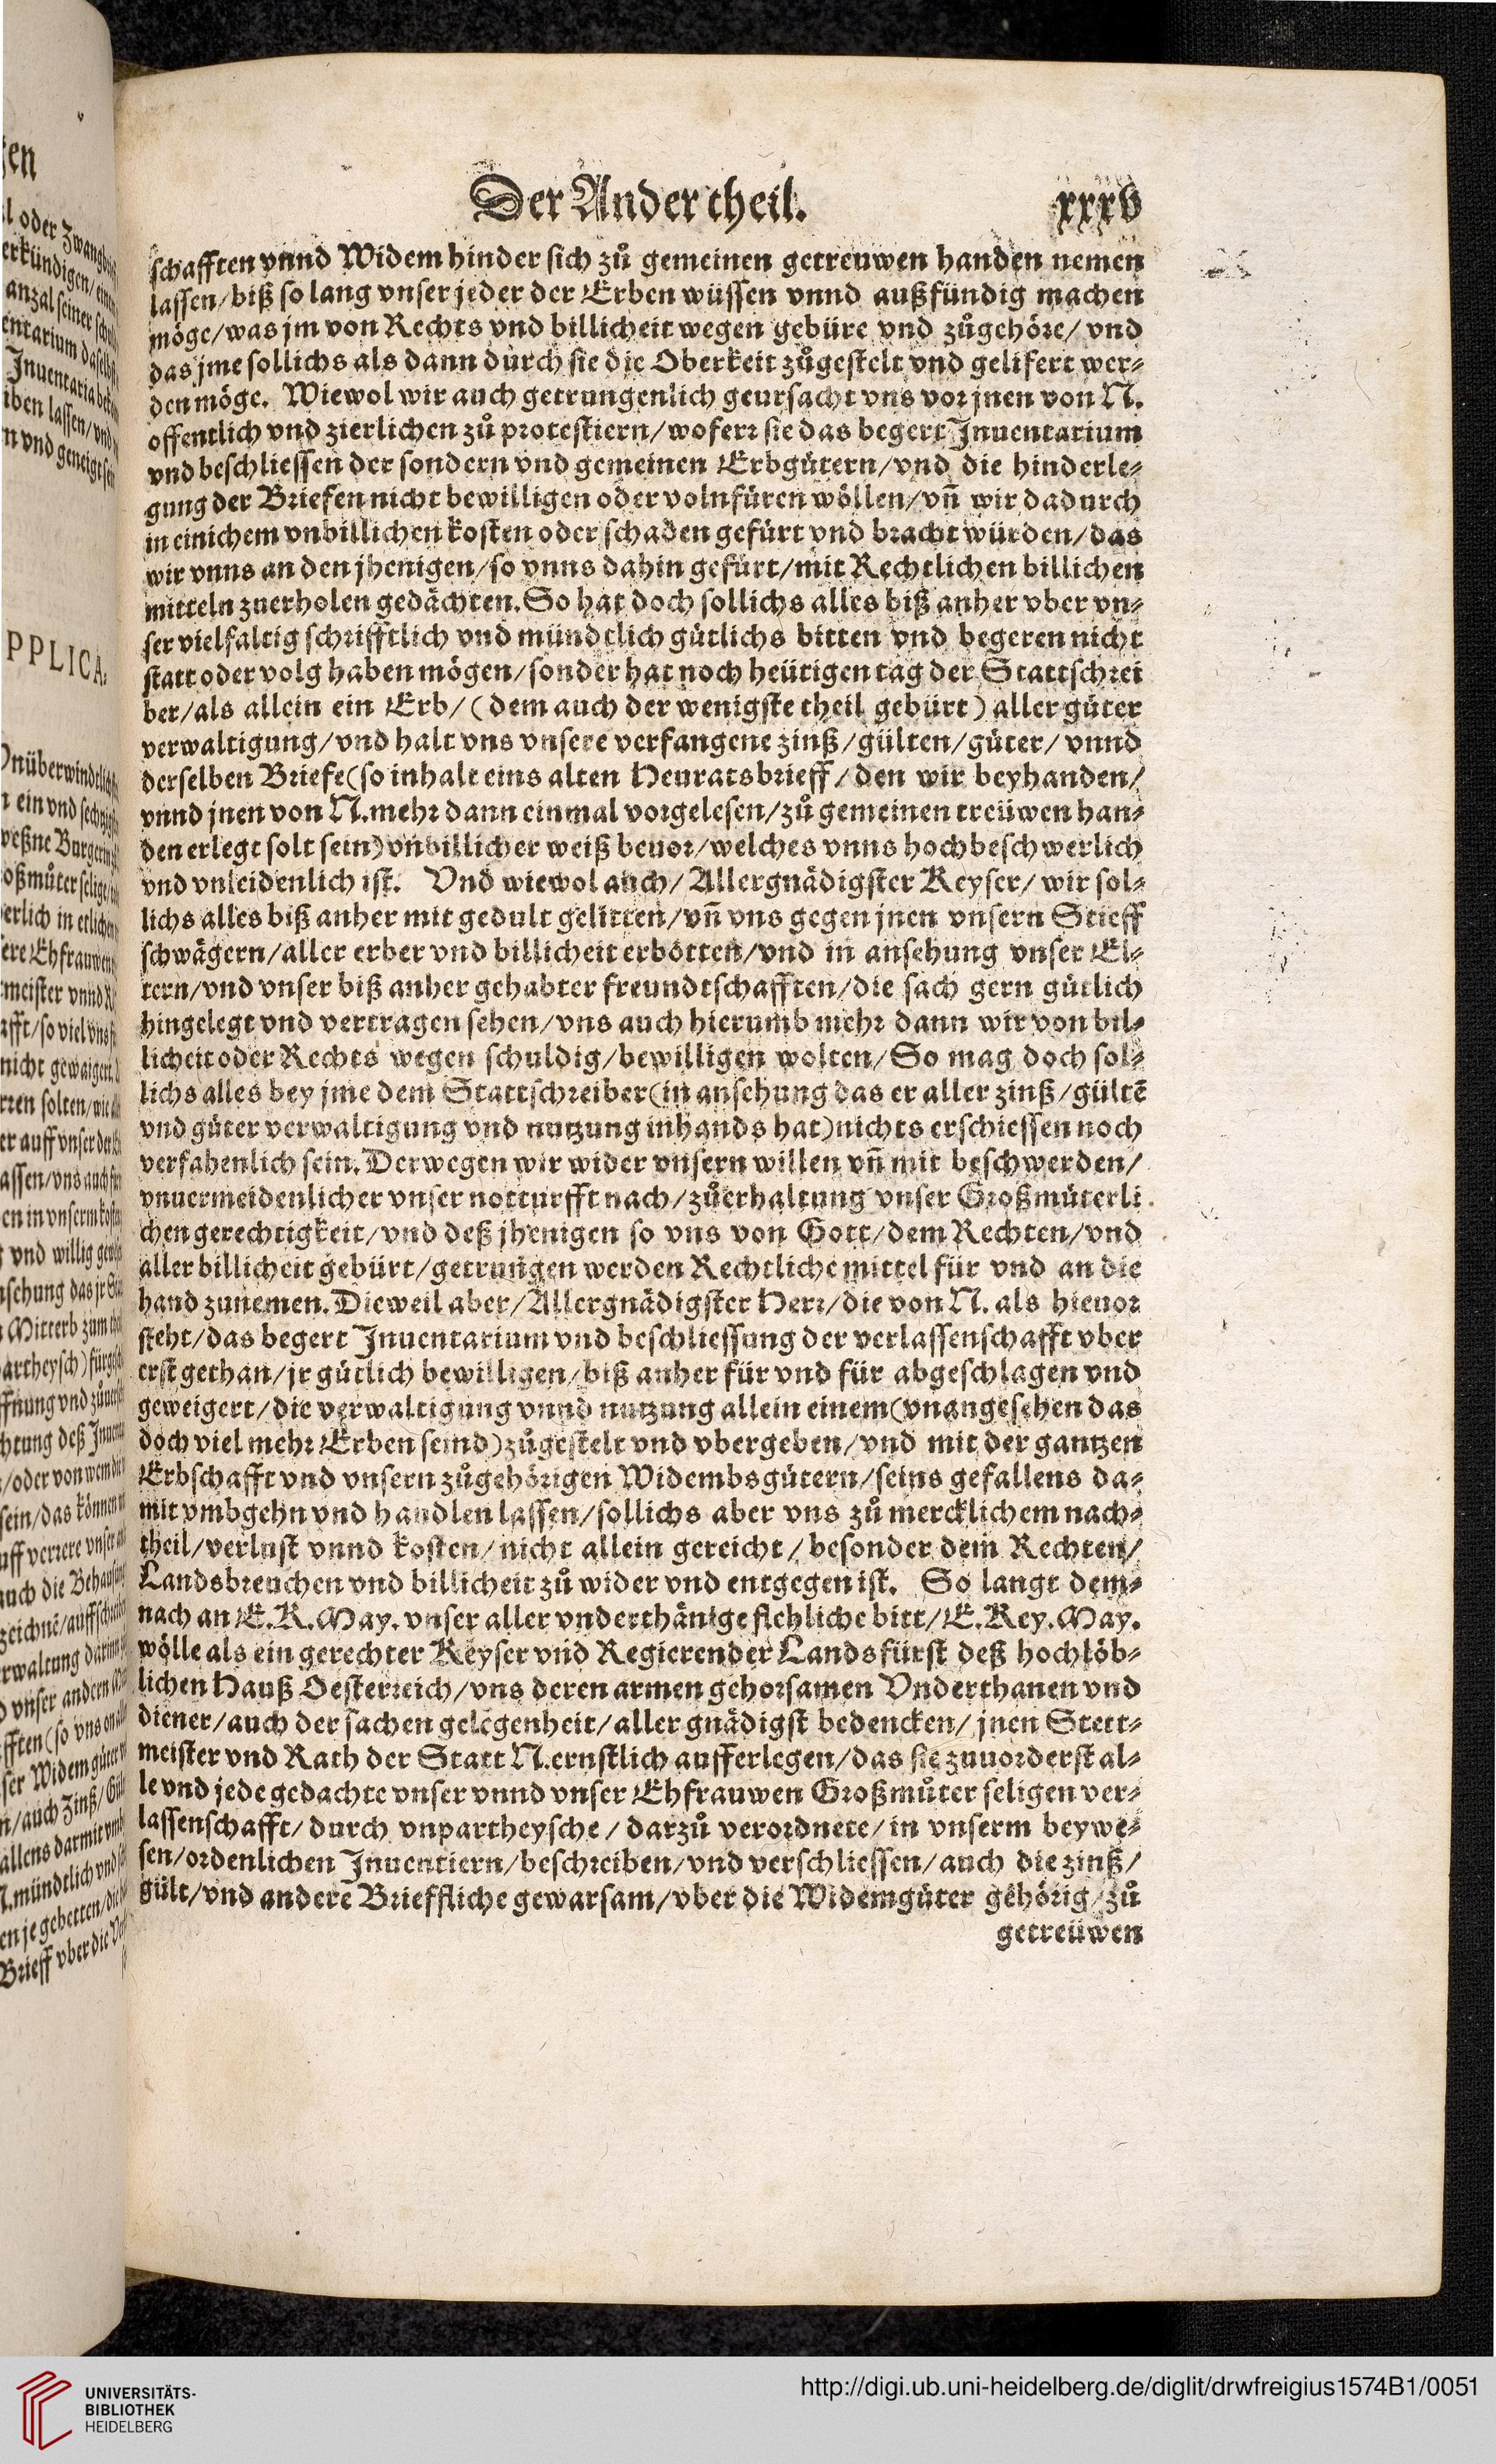 Der Ander theil. xxxv
schafften vnnd Widem hinder sich zů gemeinen getreuwen handen nemen
lassen/biß so lang vnser jeder der Erben wüssen vnnd außfündig machen
möge/was jm von Rechts vnd billicheit wegen gebüre vnd zůgehöre/vnd
das jme sollichs als dann durch sie die Oberkeit zůgestelt vnd gelifert wer-
den möge. Wiewol wir auch getrungenlich geursacht vns vor jnen von N.
offentlich vnd zierlichen zů protestiern/woferr sie das begert Inuentarium
vnd beschliessen der sondern vnd gemeinen Erbgütern/vnd die hinderle-
gung der Briefen nicht bewilligen oder volnfüren wöllen/vñ wir dadurch
in einichem vnbillichen kosten oder schaden gefürt vnd bracht würden/das
wir vnns an den jhenigen/so vnns dahin gefürt/mit Rechtlichen billichen
mitteln zuerholen gedächten. So hat doch sollichs alles biß anher vber vn-
ser vielfaltig schrifftlich vnd mündtlich gütlichs bitten vnd begeren nicht
statt oder volg haben mögen/sonder hat noch heütigen tag der Stattschrei
ber/als allein ein Erb/(dem auch der wenigste theil gebürt) aller güter
verwaltigung/vnd halt vns vnsere verfangene zinß/gülten/güter/vnnd
derselben Briefe(so inhalt eins alten Heuratsbrieff/den wir beyhanden/
vnnd jnen von N. mehr dann einmal vorgelesen/zů gemeinen treüwen han-
den erlegt solt sein) vnbillicher weiß beuor/welches vnns hochbeschwerlich
vnd vnleidenlich ist. Vnd wiewol auch/Allergnädigster Keyser/wir sol-
lichs alles biß anher mit gedult gelitten/vñ vns gegen jnen vnsern Stieff
schwägern/aller erber vnd billicheit erbotten/vnd in ansehung vnser El-
tern/vnd vnser biß anher gehabter freundtschafften/die sach gern gütlich
hingelegt vnd vertragen sehen/vns auch hierumb mehr dann wir von bil-
licheit oder Rechts wegen schuldig/bewilligen wolten/So mag doch sol-
lichs alles bey jme dem Stattschreiber(in ansehung das er aller zinß/gültē
vnd güter verwaltigung vnd nutzung inhands hat)nichts erschiessen noch
verfahenlich sein. Derwegen wir wider vnsern willen vñ mit beschwerden/
vnuermeidenlicher vnser notturfft nach/zůerhaltung vnser Großmüterli
chen gerechtigkeit/vnd deß jhenigen so vns von Gott/dem Rechten/vnd
aller billicheit gebürt/getrungen werden Rechtliche mittel für vnd an die
hand zunemen. Dieweil aber/Allergnädigster Herr/die von N. als hieuor
steht/das begert Inuentarium vnd beschliessung der verlassenschafft vber
erst gethan/jr gütlich bewilligen/biß anher für vnd für abgeschlagen vnd
geweigert/die verwaltigung vnnd nutzung allein einem(vnangesehen das
doch viel mehr Erben seind)zůgestelt vnd vbergeben/vnd mit der gantzen
Erbschafft vnd vnsern zůgehörigen Widembsgütern/seins gefallens da-
mit vmbgehn vnd handlen lassen/sollichs aber vns zů mercklichem nach-
theil/verlust vnnd kosten/nicht allein gereicht/besonder dem Rechten/
Landsbreuchen vnd billicheit zů wider vnd entgegen ist. So langt dem-
nach an E.K.May. vnser aller vnderthänige flehliche bitt/E.Key.May.
wölle als ein gerechter Keyser vnd Regierender Landsfürst deß hochlöb-
lichen Hauß Oesterreich/vns deren armen gehorsamen Vnderthanen vnd
diener/auch der sachen gelegenheit/aller gnädigst bedencken/jnen Stett-
meister vnd Rath der Statt N. ernstlich aufferlegen/das sie zuuorderst al-
le vnd jede gedachte vnser vnnd vnser Ehfrauwen Großmůter seligen ver-
lassenschafft/durch vnpartheysche/darzů verordnete/in vnserm beywe-
sen/ordenlichen Inuentiern/beschreiben/vnd verschliessen/auch die zinß/
gült/vnd andere Brieffliche gewarsam/vber die Widemgüter gehörig/zů
getreüwen
UNIVERSITÄTS-
BIBLIOTHEK
HEIDELBERG
http://digi.ub.uni-heidelberg.de/diglit/drwfreigius1574B1/0051